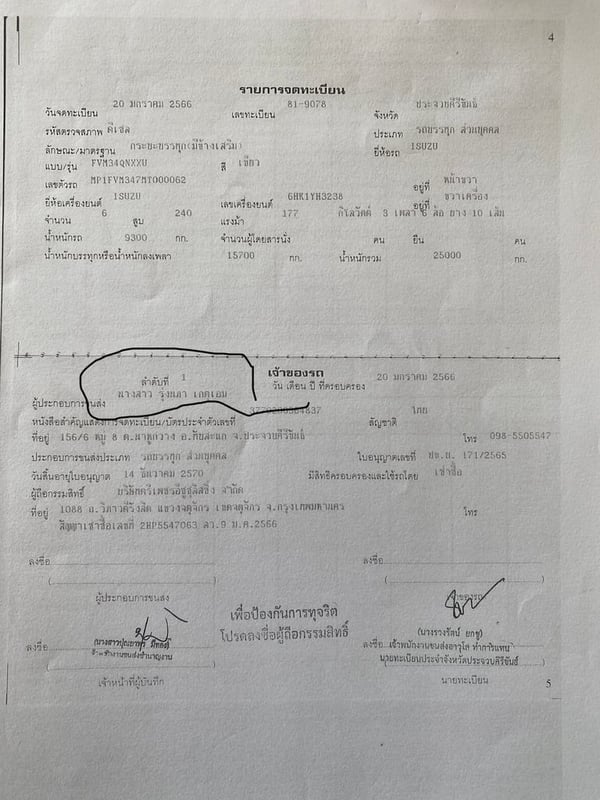 4
รายการจดทะเบียน
วันจดทะเบียน 20 มกราคม 2566 เลขทะเบียน 81-9078 จังหวัด ประจวบคีรีขันธ์
รหัสตรวจสภาพ ดีเซล ประเภท รถบรรทุก ส่วนบุคคล
ลักษณะ/มาตรฐาน กระบะบรรทุก(มีข้างเสริม) ยี่ห้อรถ ISUZU
แบบ/รุ่น FVM34QNXXU สี เขียว
เลขตัวรถ MP1FVM347MT000062 อยู่ที่ หน้าขวา
ยี่ห้อเครื่องยนต์ ISUZU เลขเครื่องยนต์ 6HK1YH3238 อยู่ที่ ขวาเครื่อง
จำนวน 6 สูบ 240 แรงม้า 177 กิโลวัตต์ 3 เพลา 6 ล้อ ยาง 10 เส้น
น้ำหนักรถ 9300 กก. จำนวนผู้โดยสารนั่ง คน ยืน คน
น้ำหนักบรรทุกหรือน้ำหนักลงเพลา 15700 กก. น้ำหนักรวม 25000 กก.
เจ้าของรถ
ลำดับที่ 1 วัน เดือน ปี ที่ครอบครอง 20 มกราคม 2566
ผู้ประกอบการขนส่ง นางสาว รุ่งนภา
หนังสือสำคัญแสดงการจดทะเบียน/บัตรประจำตัวเลขที่ สัญชาติ ไทย
ที่อยู่ 156/6 หมู่ 8 ต.หาดูกวาง อ.ทับสะแก จ.ประจวบคีรีขันธ์ โทร 098-5505547
ประกอบการขนส่งประเภท รถบรรทุก ส่วนบุคคล ใบอนุญาตเลขที่ ปข.บ. 171/2565
วันสิ้นอายุใบอนุญาต 14 ธันวาคม 2570 มีสิทธิครอบครองและใช้รถโดย เช่าซื้อ
ผู้ถือกรรมสิทธิ์ บริษัทตรีเพชรอีซูซุลิสซิ่ง จำกัด
ที่อยู่ 1088 ถ.วิภาวดีรังสิต แขวงจตุจักร เขตจตุจักร จ.กรุงเทพมหานคร โทร
สัญญาเช่าซื้อเลขที่ 2HP5547063 ลว.9 ม.ค.2566
ลงชื่อ ลงชื่อ
( ) ( )
ผู้ประกอบการขนส่ง เจ้าของรถ
เพื่อป้องกันการทุจริต
โปรดลงชื่อผู้ถือกรรมสิทธิ์
ลงชื่อ เจ้าพนักงานขนส่งชำนาญงาน
(นางรางรัตน์ ยกชู)
ลงชื่อ เจ้าพนักงานขนส่งอาวุโส ทำการแทน
นายทะเบียนประจำจังหวัดประจวบคีรีขันธ์
เจ้าหน้าที่ผู้บันทึก นายทะเบียน
5